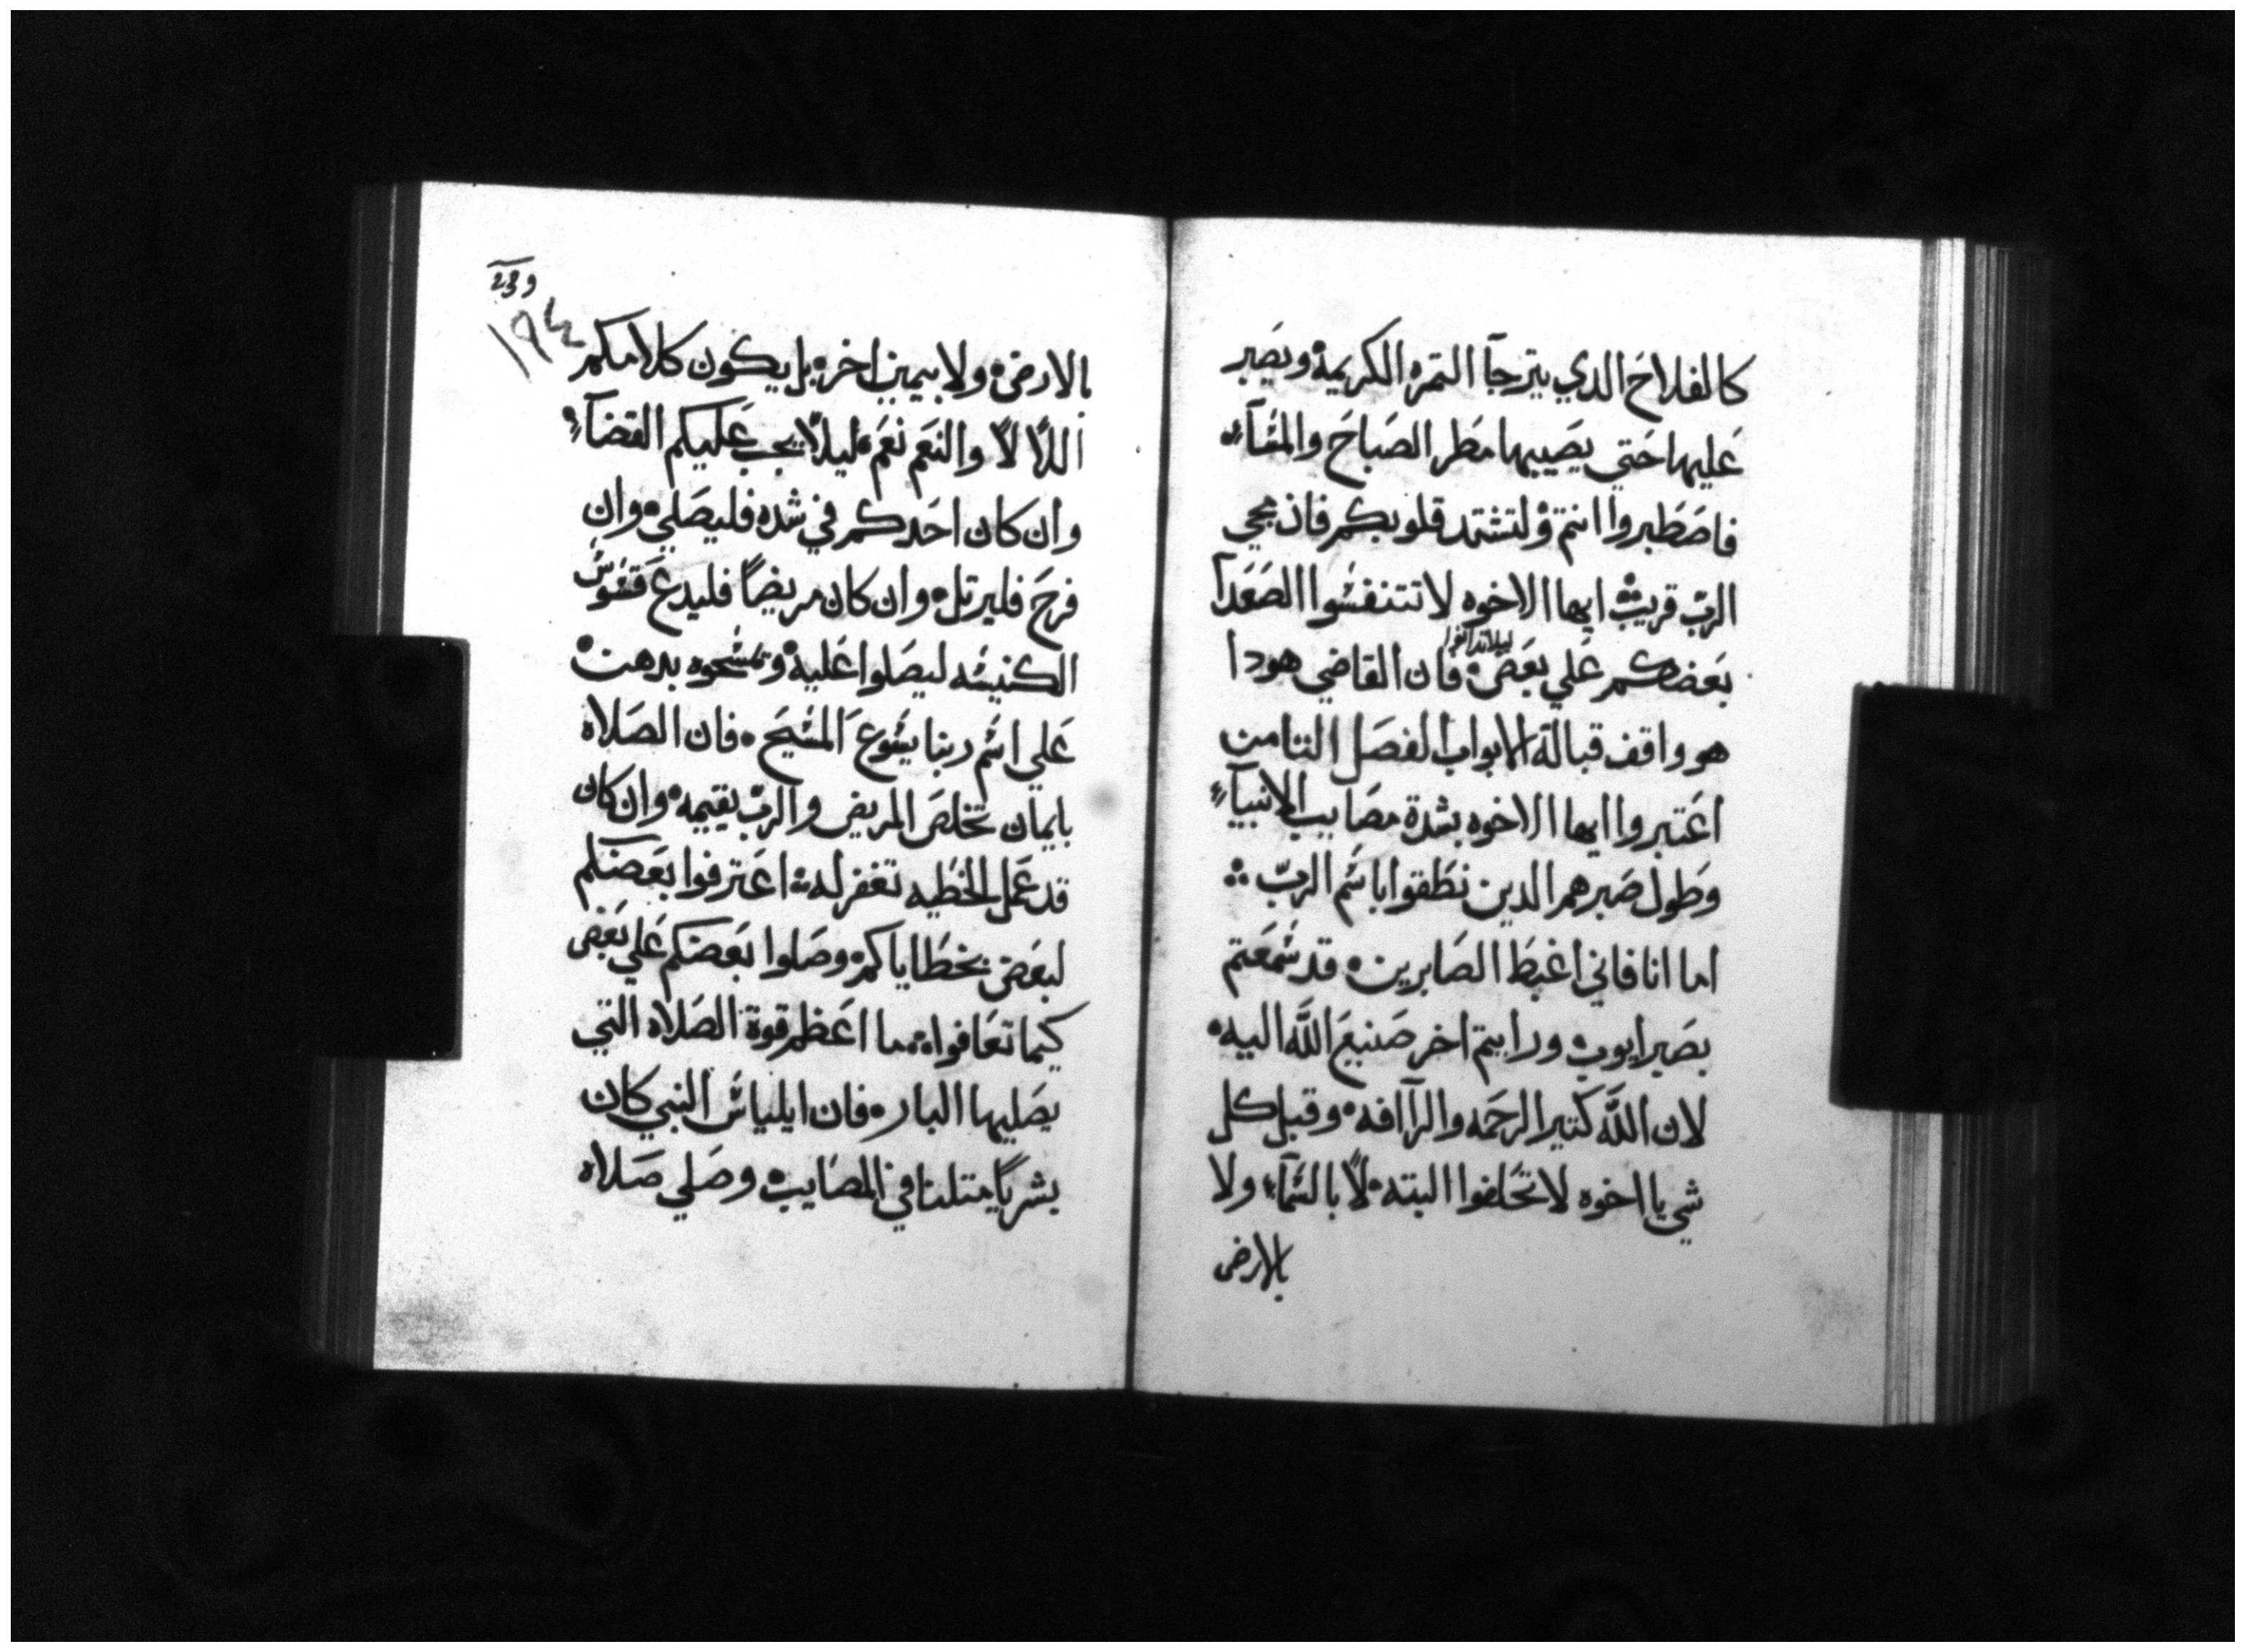 كالفلاح الدي يترجآ التمره الكريمه ويصبر
عليها حتي يصيبها مطر الصباح والمسآء
فاصطبروا انتم ولتشتد قلوبكم فان مجي
الرب قريب ايها الاخوه لا تتنفسوا الصعدآ
ليلا تدانوا
بعضكم علي بعض فان القاضي هودا
هو واقف قبالة الابواب الفصل التامن
اعتبروا ايها الاخوه بشدة مصايب الانبيآء
وطول صبرهم الدين نطقوا باسم الرب
اما انا فاني اغبط الصابرين قد سمعتم
بصبر ايوب ورايتم اخر صنيع الله اليه
لان الله كتير الرحمه والرآافه وقبل كل
شي يا اخوه لا تحلفوا البته لا بالسمآء ولا
بالارض
و23
١٩٤
بالارض ولا بيمين اخر بل يكون كلامكم
اللا لا والنعم نعم ليلا يجب عليكم القضآء
وان كان احدكم في شده فليصلي وان
فرح فليرتل وان كان مريضاً فليدع قسوس
الكنيسه ليصلوا عليه وتمسحوه بدهن
علي اسم ربنا يسوع المسيح فان الصلاه
بايمان تخلص المريض والرب يقيمه وان كان
قد عمل الخطيه تغفر له اعترفوا بعضكم
لبعض بخطاياكم وصلوا بعضكم علي بعض
كيما تعافوا ما اعظم قوة الصلاه التي
يصليها البار فان ايلياس النبي كان
بشرياً متلنا في المصايب وصلي صلاه